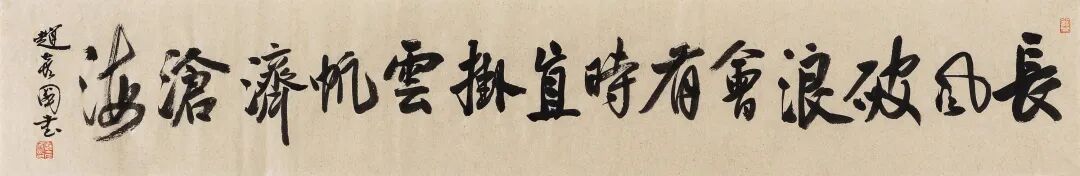 長風破浪會有時直掛雲帆濟滄海
趙彥國書